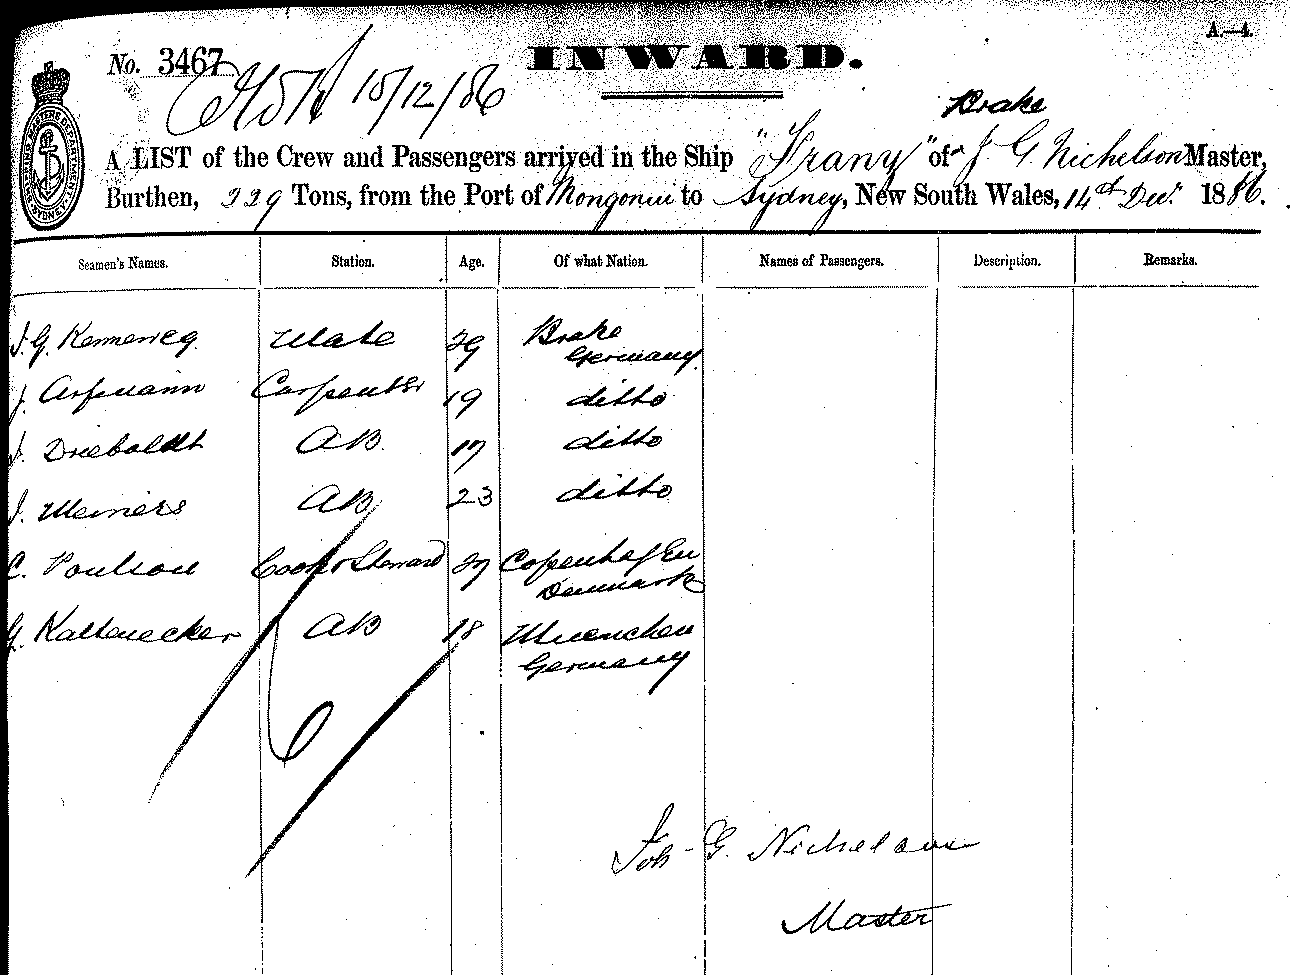 A.—4.
No. 3467
INWARD.
15/12/86
Brake
A LIST of the Crew and Passengers arrived in the Ship "Franz" of J. G. Nichelson Master,
Burthen, 229 Tons, from the Port of Mongonui to Sydney, New South Wales, 14th Decr. 1886.
Seamen's Names. Station. Age. Of what Nation. Names of Passengers. Description. Remarks.
J. G. Mate 29 Brake
Germany
J. Carpenter 19 ditto
J. Drieboldt AB 17 ditto
J. Meiners AB 23 ditto
C. Poulson Cook & Steward 27 Copenhagen
Denmark
G. Kaltenecker AB 18 Muenchen
Germany
6
Joh. G. Nichelson
Master